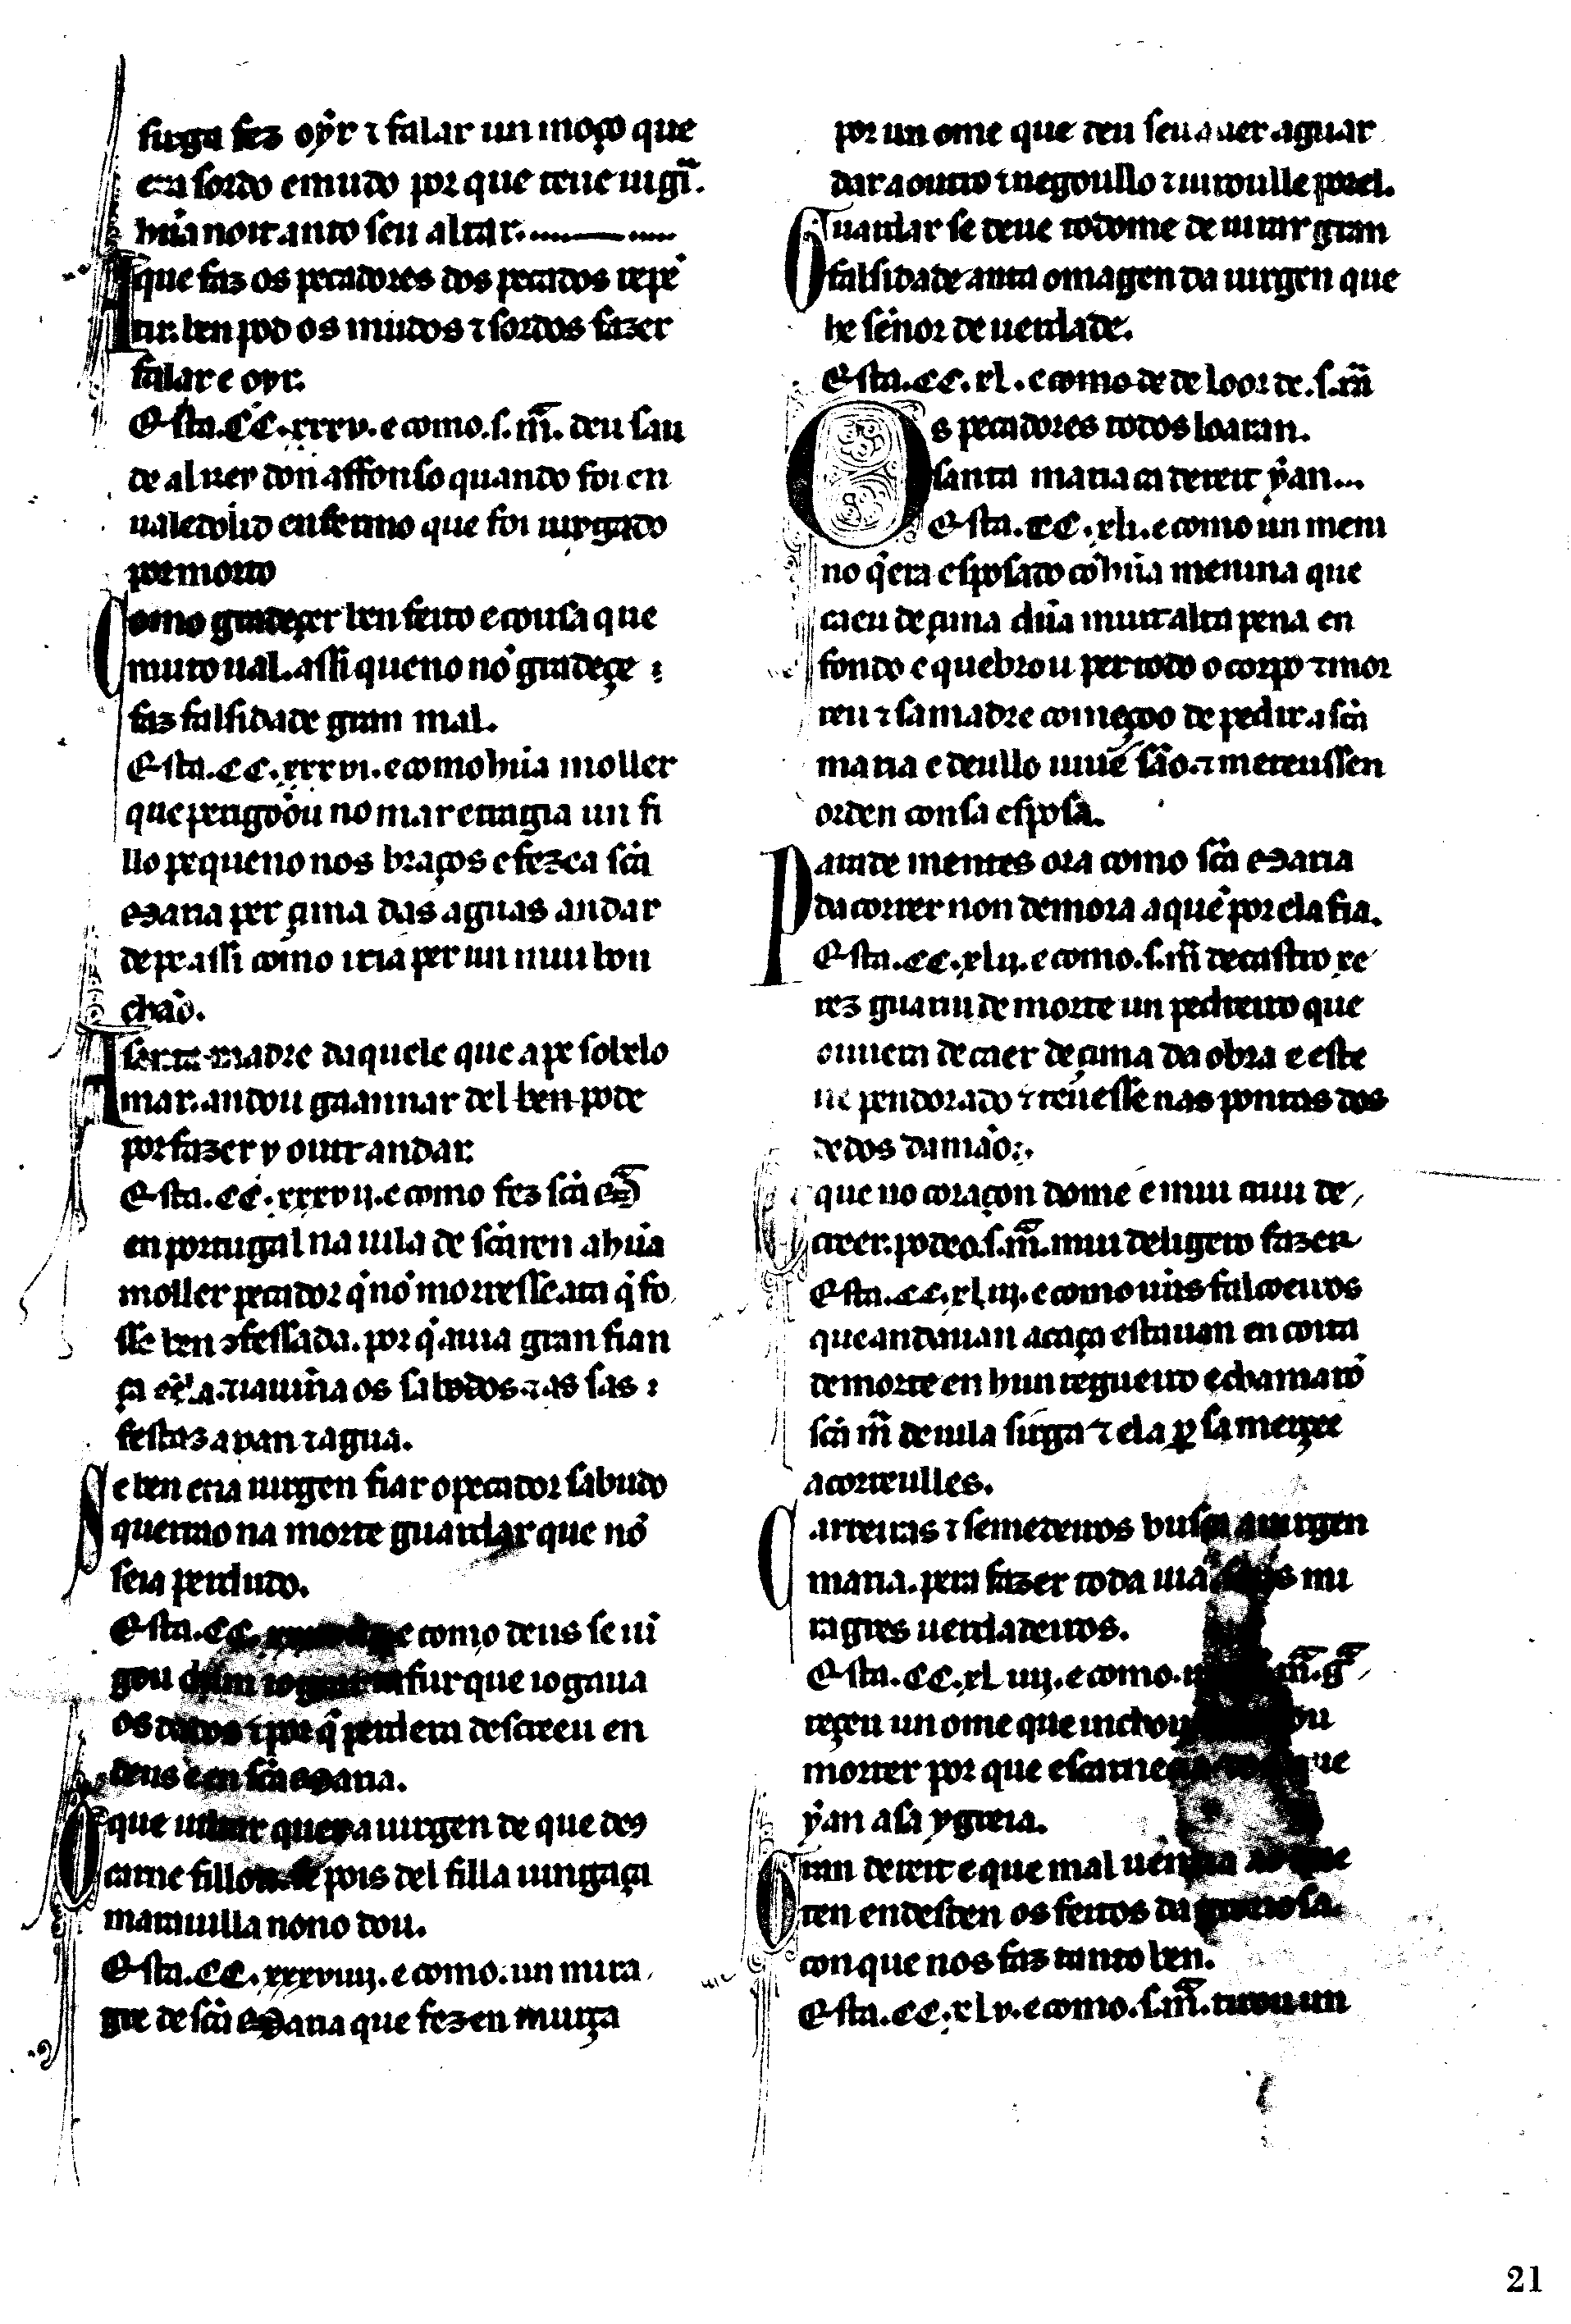 surga fez oyr ⁊ falar un moço que
era sordo e mudo por que teue uigi̅.
hũa noit anto seu altar.
A que faz os pecadores dos pecados repẽ
tir. ben pod os mudos ⁊ sordos fazer
falar e oyr.
Esta .CC.xxxv. e como .s. m̅. deu sau
de al rey don affonso quando foi en
ualedolid enfermo que foi iuygado
por morto
Como gradeçer ben feito e cousa que
muito ual. assi queno nõ gradeçe
faz falsidade gran mal.
Esta .CC.xxxvi. e como hũa moller
que perigóóu no mar e tragia un fi
llo pequeno nos braços e feze a sc̃a
Maria per çima das aguas andar
de pe assi como iria per un mui bon
chão.
A Santa madre daquele que a pe sobelo
mar. andou guannar del ben pode
por fazer y outr andar.
Esta .CC.xxxvij. e como fez sc̃a M̅
en portugal na uila de sc̃aren a hũa
moller pecador q̃ nõ morresse ata q̃ fo
sse ben ↄfessada. por q̃ auia gran fian
ça ẽ ela. ⁊ iaiũa os sabados ⁊ as sas
festas a pan ⁊ agua.
Se ben ena uirgen fiar o pecador sabudo
querrao na morte guardar que nõ
seia perdudo.
Esta .CC. e como deus se uĩ
gou dun iograr tafur que iogaua
os dados ⁊ por q̃ perdera descreeu en
deus e en sc̃a Maria.
O que uiltar quer a uirgen de que des
carne fillou. se pois del filla uingança
marauilla nono dou.
Esta .CC.xxxviiij. e como. un mira
gre de sc̃a Maria que fez en murça
por un ome que deu seu auer a guar
dar a outro ⁊ negoullo ⁊ iuroulle por el.
Guardar se deue tod ome de iurar gran
falsidade anta omagen da uirgen que
he sẽnor de uerdade.
Esta .CC.xl. e como de de loor de .s. m̅
Os pecadores todos loaran.
santa maria ca dereit y an...
Esta .CC.xli. e como un meni
no q̃ era esposado cõ hũa menina que
caeu de çima dũa muit alta pena en
fondo e quebrou per todo o corpo ⁊ mor
reu ⁊ sa madre começou de pedir a sc̃a
maria e deullo uiuẽ são. ⁊ meteussen
orden con sa esposa.
Parade mentes ora como sc̃a Maria
d acorrer non demora a quẽ por ela fia.
Esta .CC.xlij. e como .s. m̃ de castro xe
rez guariu de morte un pedreiro que
ouuera de caer de çima da obra e este
ue pendorado ⁊ teuesse nas pontas dos
dedos da mão.
O que no coraçon dome e mui cruu de
creer. podeo .s. m̅. mui de ligero fazer
Esta .CC.xliij. e como ũus falcoeiros
que andauan a caça estauan en coita
de morte en hun regueiro e chamarõ
sc̃a m̅ de uila sirga ⁊ ela ꝑ sa merçee
acorreulles.
Carreiras ⁊ semedeiros busca a uirgen
maria. pera fazer toda uia mi
ragres uerdadeiros.
Esta .CC.xliiij. e como m̅. g̃
reçeu un ome que inchou
morrer por que escarneç ue
yan a sa ygreia.
Gran dereit e que mal uenna ao que
ten en desden os feitos da groriosa.
con que nos faz tanto ben.
Esta .CC.xlv. e como .s. m̅. tirou un
21